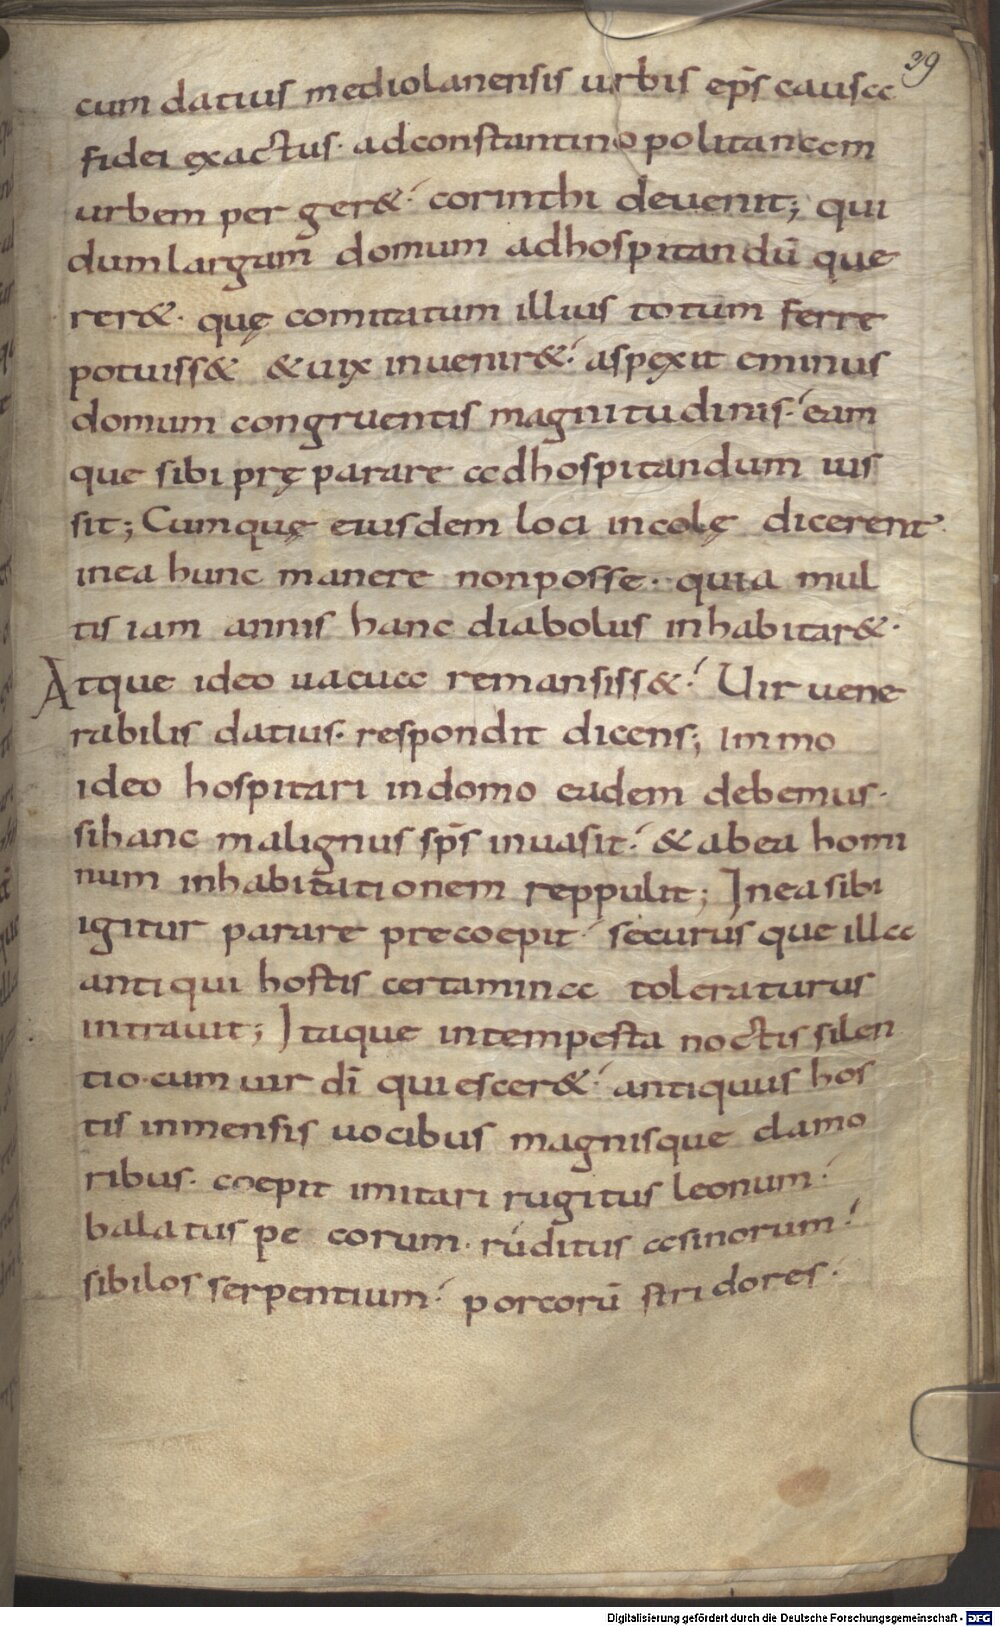 39
cum datius mediolanensis urbis ep̄s causa
fidei exactus· adconstantinopolitanam
urbem perger&· corinthi deuenit; qui
dum largam̄ domum adhospitandū que
rer&· quę comitatum illius totum ferre
potuiss& &uix inuenir&· aspęxit eminus
domum congruentis magnitudinis· eam
que sibi pręparare adhospitandum ius
sit; Cumquę eiusdem loci incolę dicerent·
inea hunc manere nonposse· quia mul
tis iam annis hanc diabolus inhabitar&·
Atque ideo uacua remansiss&· Uir uene
rabilis datius· respondit dicens; Immo
ideo hospitari indomo eadem debemus·
sihanc malignus sp̄s inuasit· &abea homi
num inhabitationem reppulit; Inea sibi
igitur parare precoepit· securus que illa
antiqui hostis certamina toleraturus
intrauit; Itaque intempesta noctis silen
tio·cum uir dī quiescer&· antiquus hos
tis inmensis uocibus magnisque clamo
ribus· coepit imitari rugitus leonum·
balatus pecorum· ruditus asinorum·
sibilos serpentium· porcorū stridores·
Digitalisierung gefördert durch die Deutsche Forschungsgemeinschaft - DFG